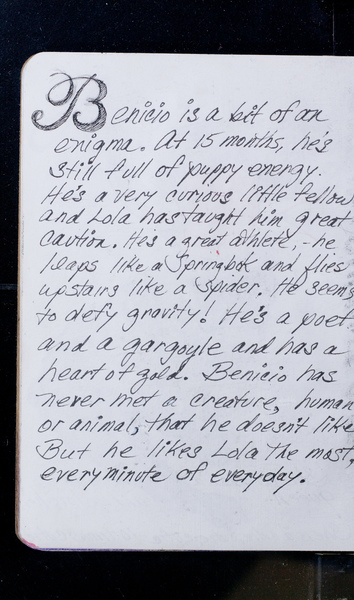 Benicio is a bit of an
enigma. At 15 months, he's
still full of puppy energy.
He's a very curious little fellow
and Lola has taught him great
caution. He's a great athlete, - he
leaps like a Springbok and flies
upstairs like a spider. He seems
to defy gravity! He's a poet
and a gargoyle and has a
heart of gold. Benicio has
never met a creature, human
or animal, that he doesn't like
But he likes Lola the most,
every minute of everyday.